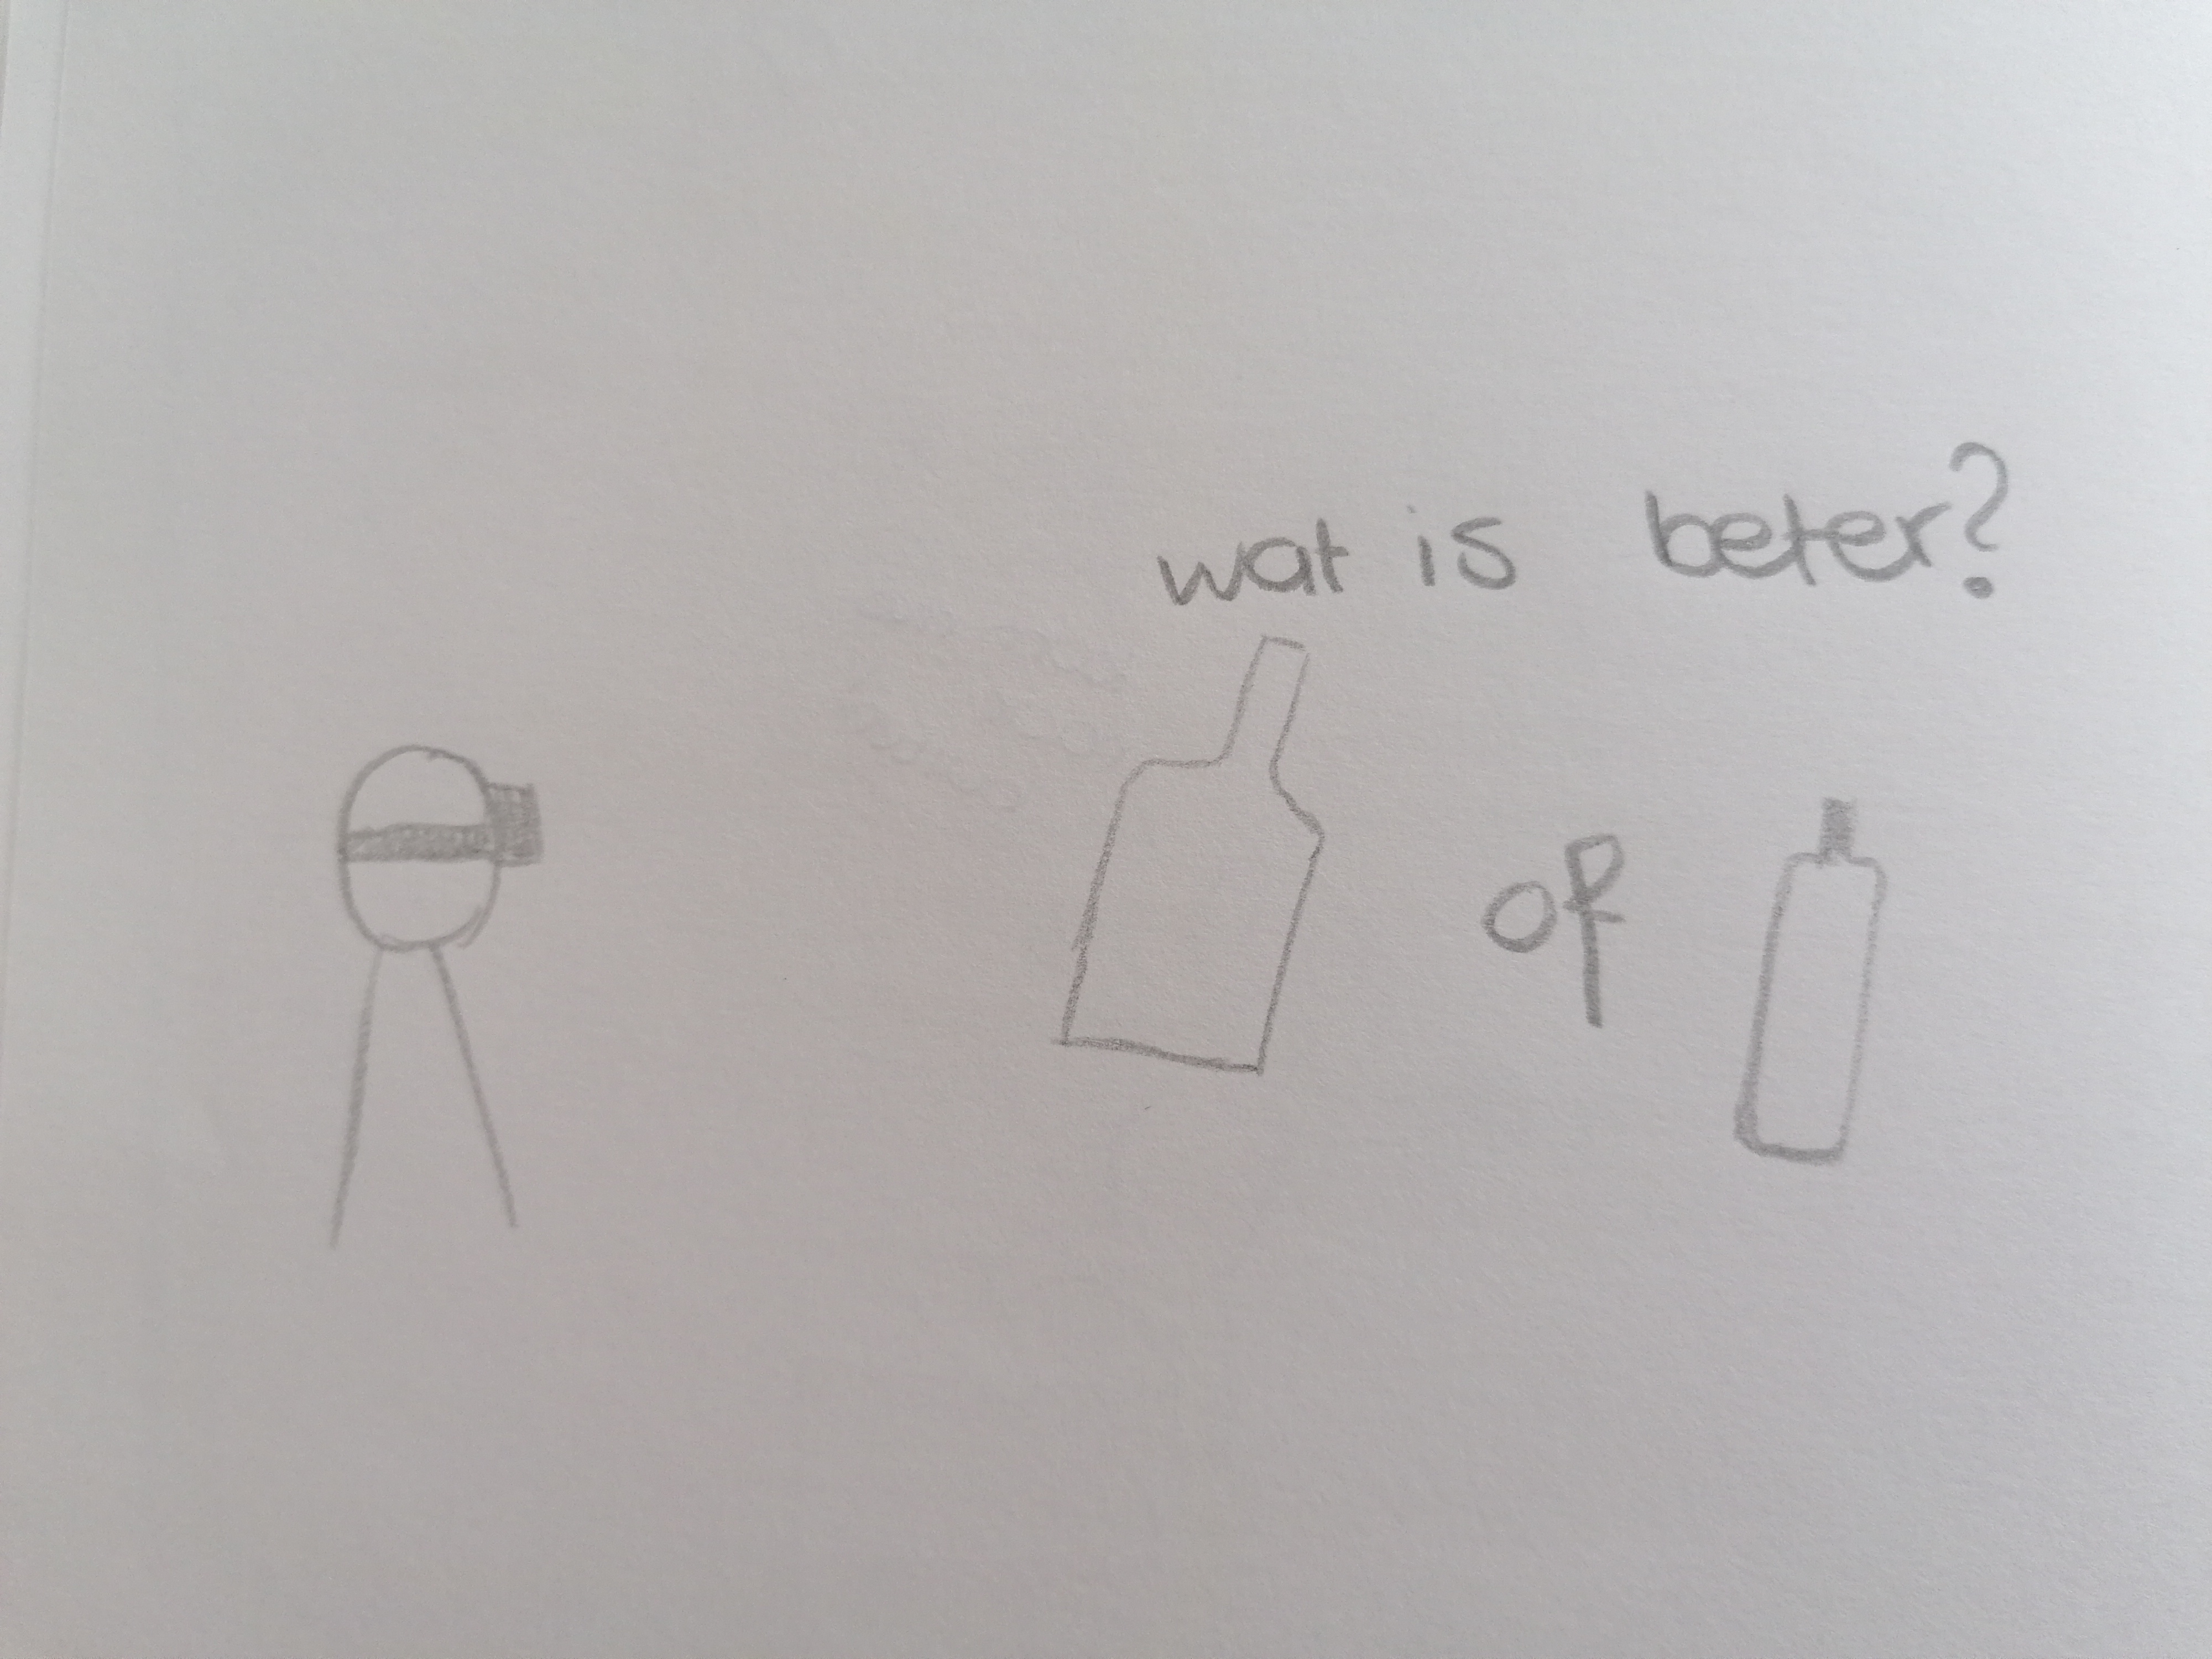 wat is beter?
of